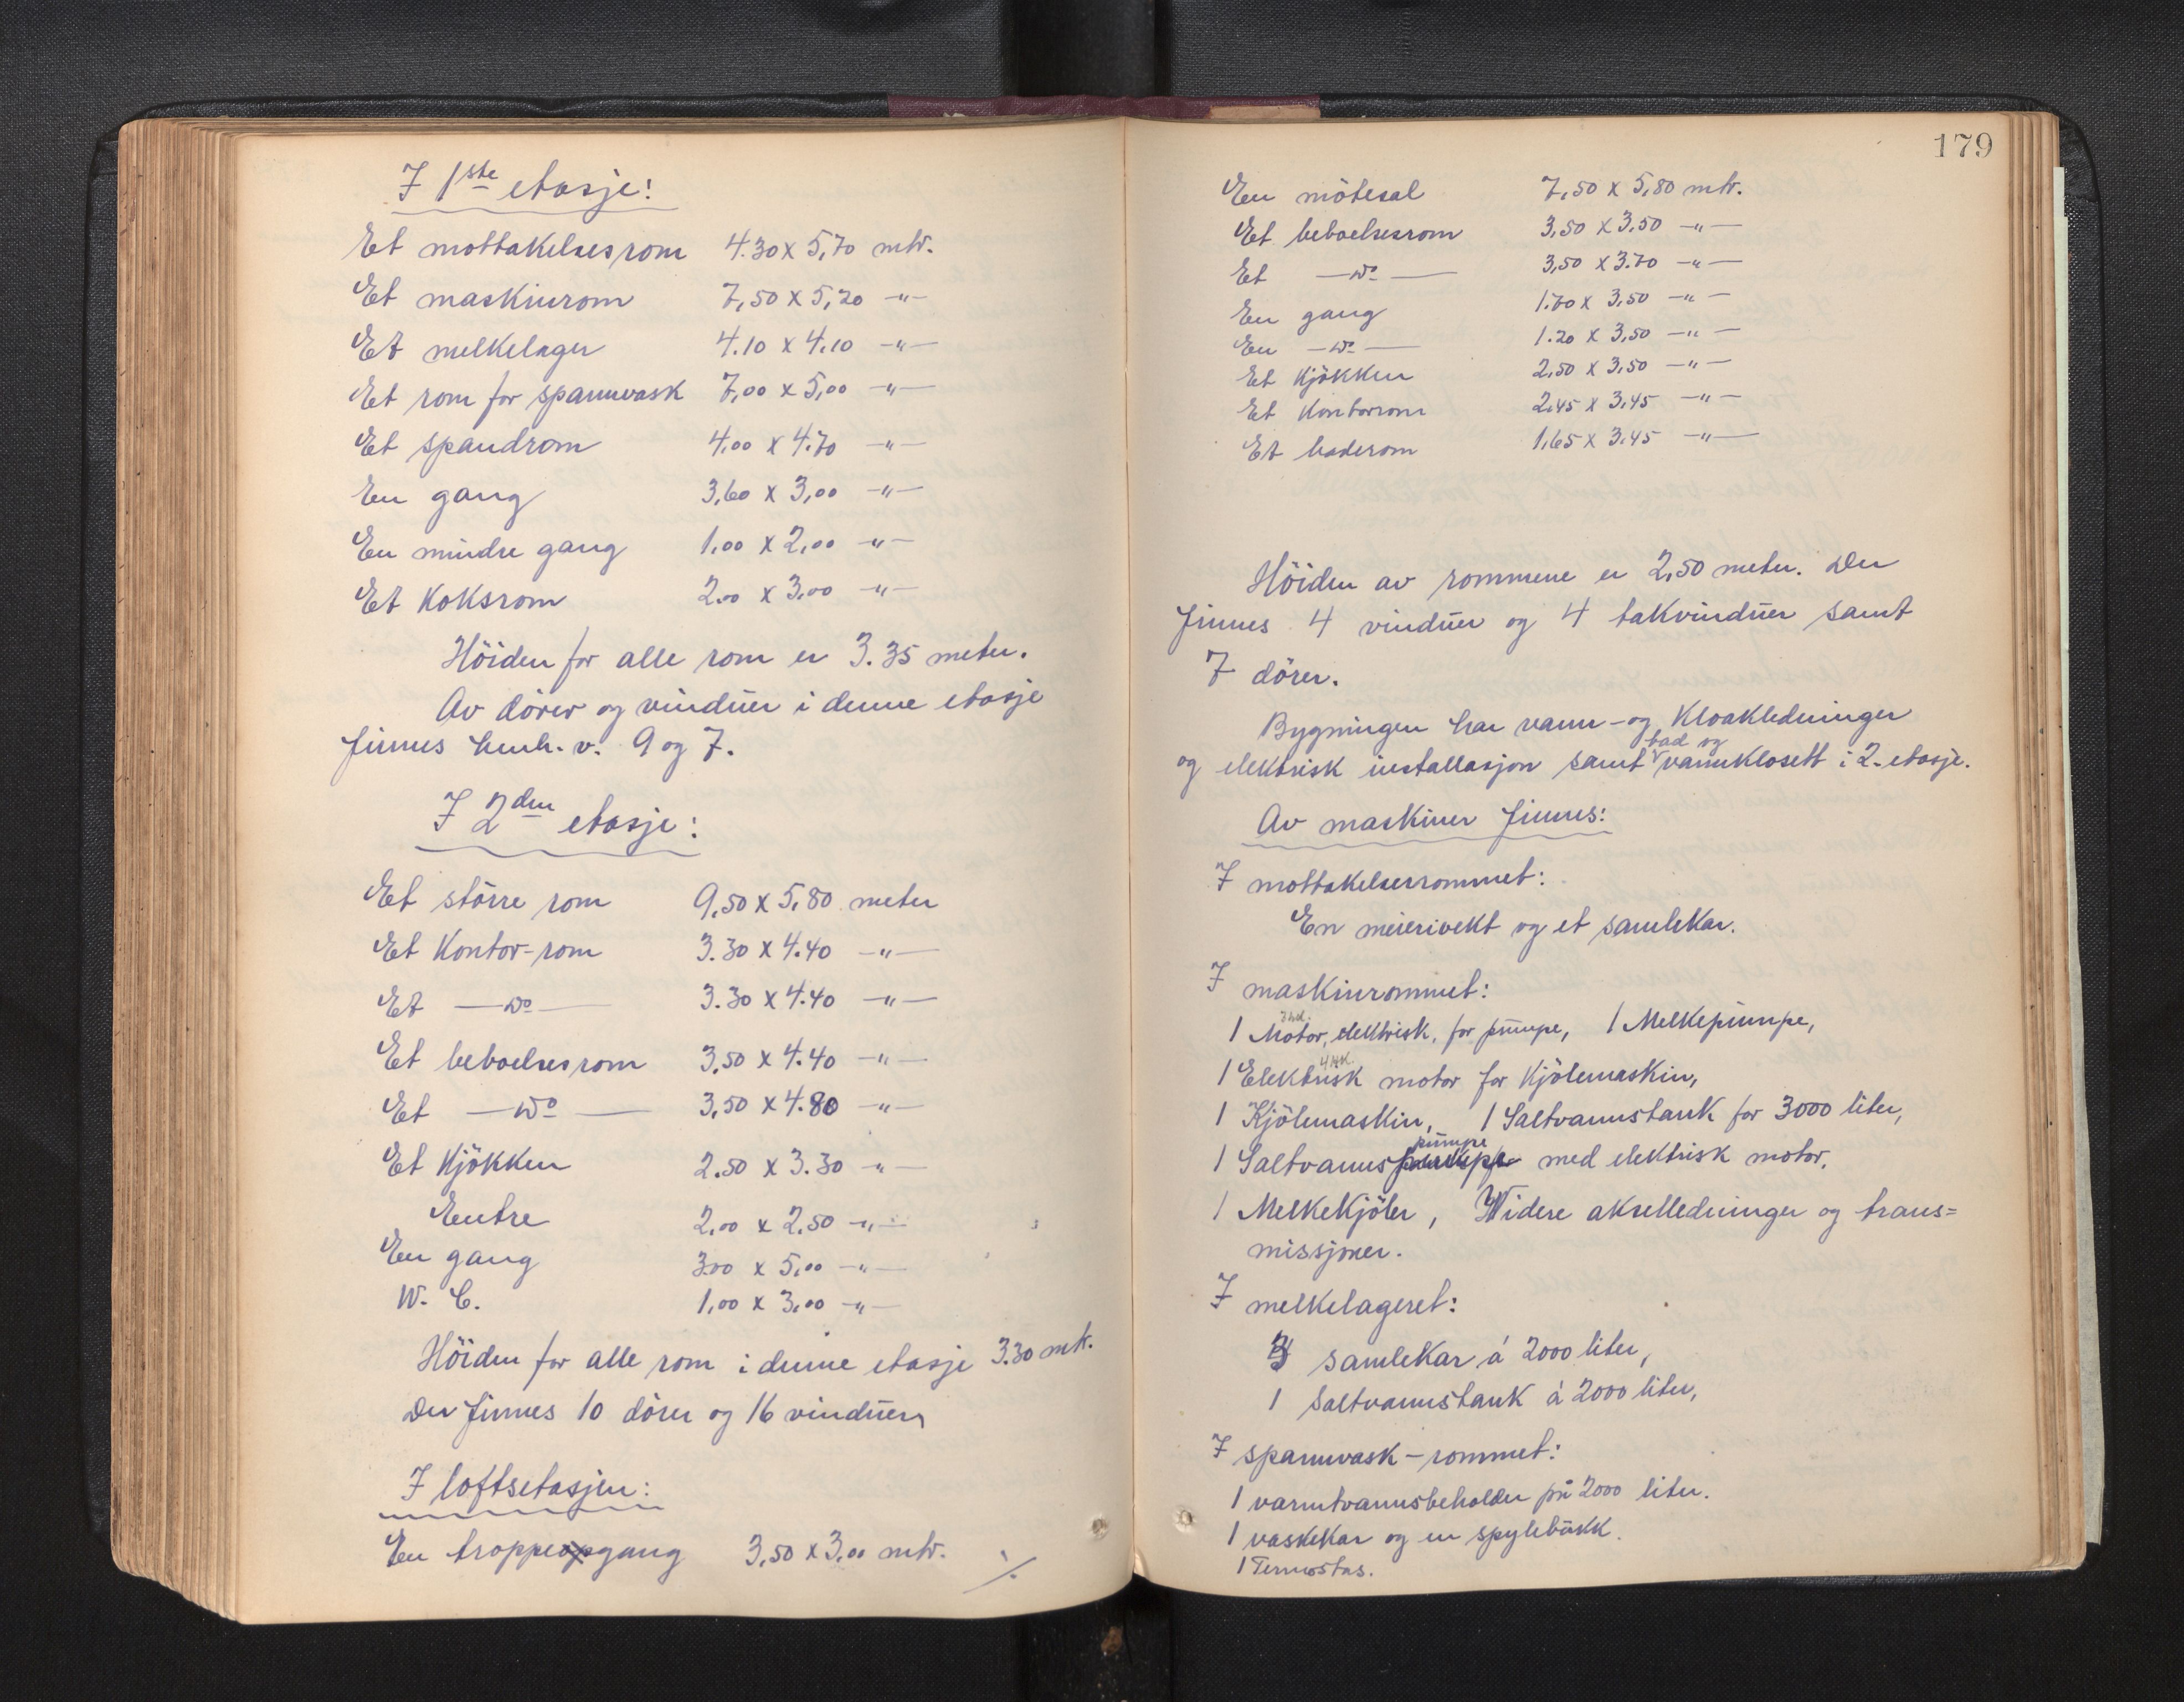 I 1ste etasje:
Et mottakelsesrom 4.30 x 5,70 mtr.
Et maskinrom 7,50 x 5,20 —"—
Et melkelager 4.10 x 4.10 —"—
Et rom for spannvask 7,00 x 5,00 —"—
Et spandrom 4,00 x 4.70 —"—
En gang 3,60 x 3,00 —"—
En mindre gang 1,00 x 2,00 —"—
Et Koksrom 2.00 x 3,00 —"—
Höiden for alle rom er 3.35 meter.
Av dörer og vinduer i denne etasje
finnes henh. v. 9 og 7.
I 2den etasje:
Et större rom 9,50 x 5,80 meter
Et Kontor-rom 3.30 x 4.40 —"—
Et —do— 3.30 x 4.40 —"—
Et beboelsesrom 3,50 x 4.40 —"—
Et —do— 3,50 x 4.80 —"—
Et Kjökken 2.50 x 3.30 —"—
Entre 2,00 x 2.50 —"—
En gang 3.00 x 5,00 —"—
W. C. 1,00 x 3,00 —"—
Höiden for alle rom i denne etasje 3.30 mtr.
Der finnes 10 dörer og 16 vinduer,
I loftsetasjen:
En troppeopgang 3,50 x 3,00 mtr.
./.
179
En mötesal 7,50 x 5,80 mtr.
Et beboelsesrom 3,50 x 3,50 —"—
Et —do— 3,50 x 3.70 —"—
En gang 1.70 x 3,50 —"—
En —do— 1.20 x 3,50 —"—
Et Kjökken 2,50 x 3,50 —"—
Et Kontorrom 2,45 x 3,45 —"—
Et baderom 1,65 x 3,45 —"—
Höiden av rommene er 2,50 meter. Der
finnes 4 vinduer og 4 takvinduer samt
7 dörer.
Bygningen har vann- og Kloakledninger
bad og
og elektrisk installasjon samt vannklosett i 2. etasje.
Av maskiner finnes:
I mottakelsesrommet:
En meierivekt og et samlekar.
I maskinrommet:
1 Motor, elektrisk, for pumpe, 1 Melkepumpe,
4 HK.
1 Elektrisk motor for Kjölemaskin,
1 Kjölemaskin, 1 Saltvannstank for 3000 liter,
pumpe
1 Saltvanns med elektrisk motor.
1 Melkekjöler, Videre akselledninger og trans=
missjoner.
I melkelageret:
samlekar á 2000 liter,
1 Saltvannstank á 2000 liter,
I spannvask-rommet:
1 varmtvannsbeholder på 2000 liter.
1 vaskekar og en spylebänk.
1 Termostas.